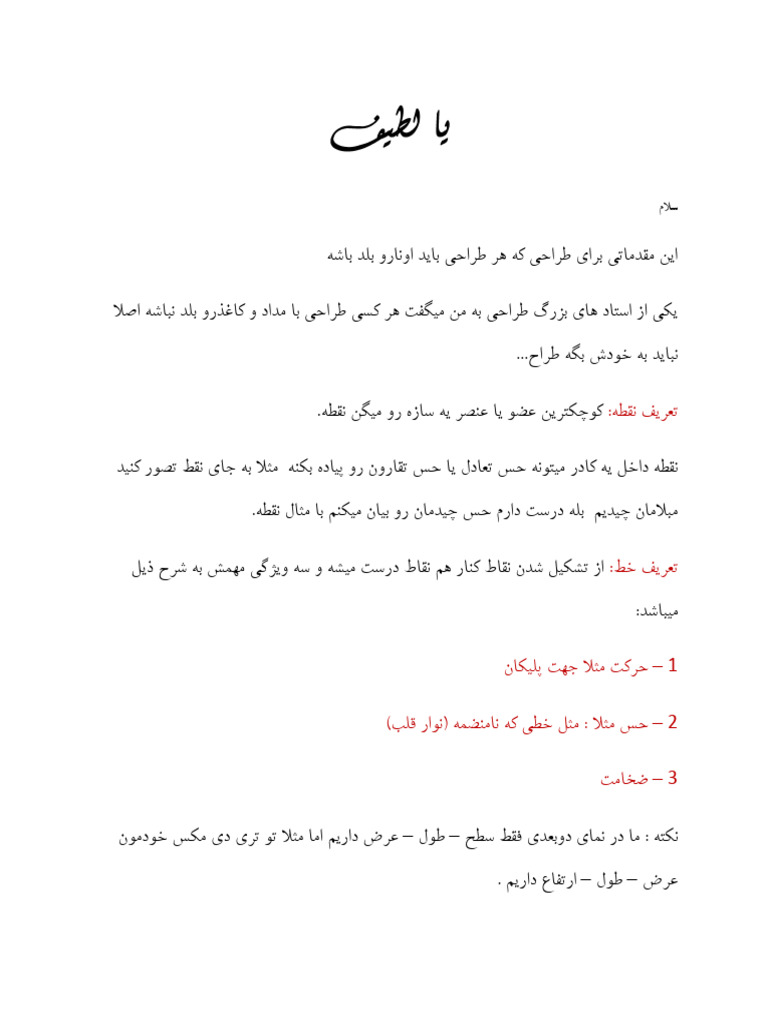 یا لطیف
سلام
این مقدماتی برای طراحی که هر طراحی باید اونارو بلد باشه
یکی از استاد های بزرگ طراحی به من میگفت هر کسی طراحی با مداد و کاغذرو بلد نباشه اصلا
نباید به خودش بگه طراح...
تعریف نقطه: کوچکترین عضو یا عنصر یه سازه رو میگن نقطه.
نقطه داخل یه کادر میتونه حس تعادل یا حس تقارون رو پیاده بکنه مثلا به جای نقط تصور کنید
مبلامان چیدیم بله درست دارم حس چیدمان رو بیان میکنم با مثال نقطه.
تعریف خط: از تشکیل شدن نقاط کنار هم نقاط درست میشه و سه ویژگی مهمش به شرح ذیل
میباشد:
1 – حرکت مثلا جهت پلیکان
2 – حس مثلا : مثل خطی که نامنضمه (نوار قلب)
3 – ضخامت
نکته : ما در نمای دوبعدی فقط سطح – طول – عرض داریم اما مثلا تو تری دی مکس خودمون
عرض – طول – ارتفاع داریم .